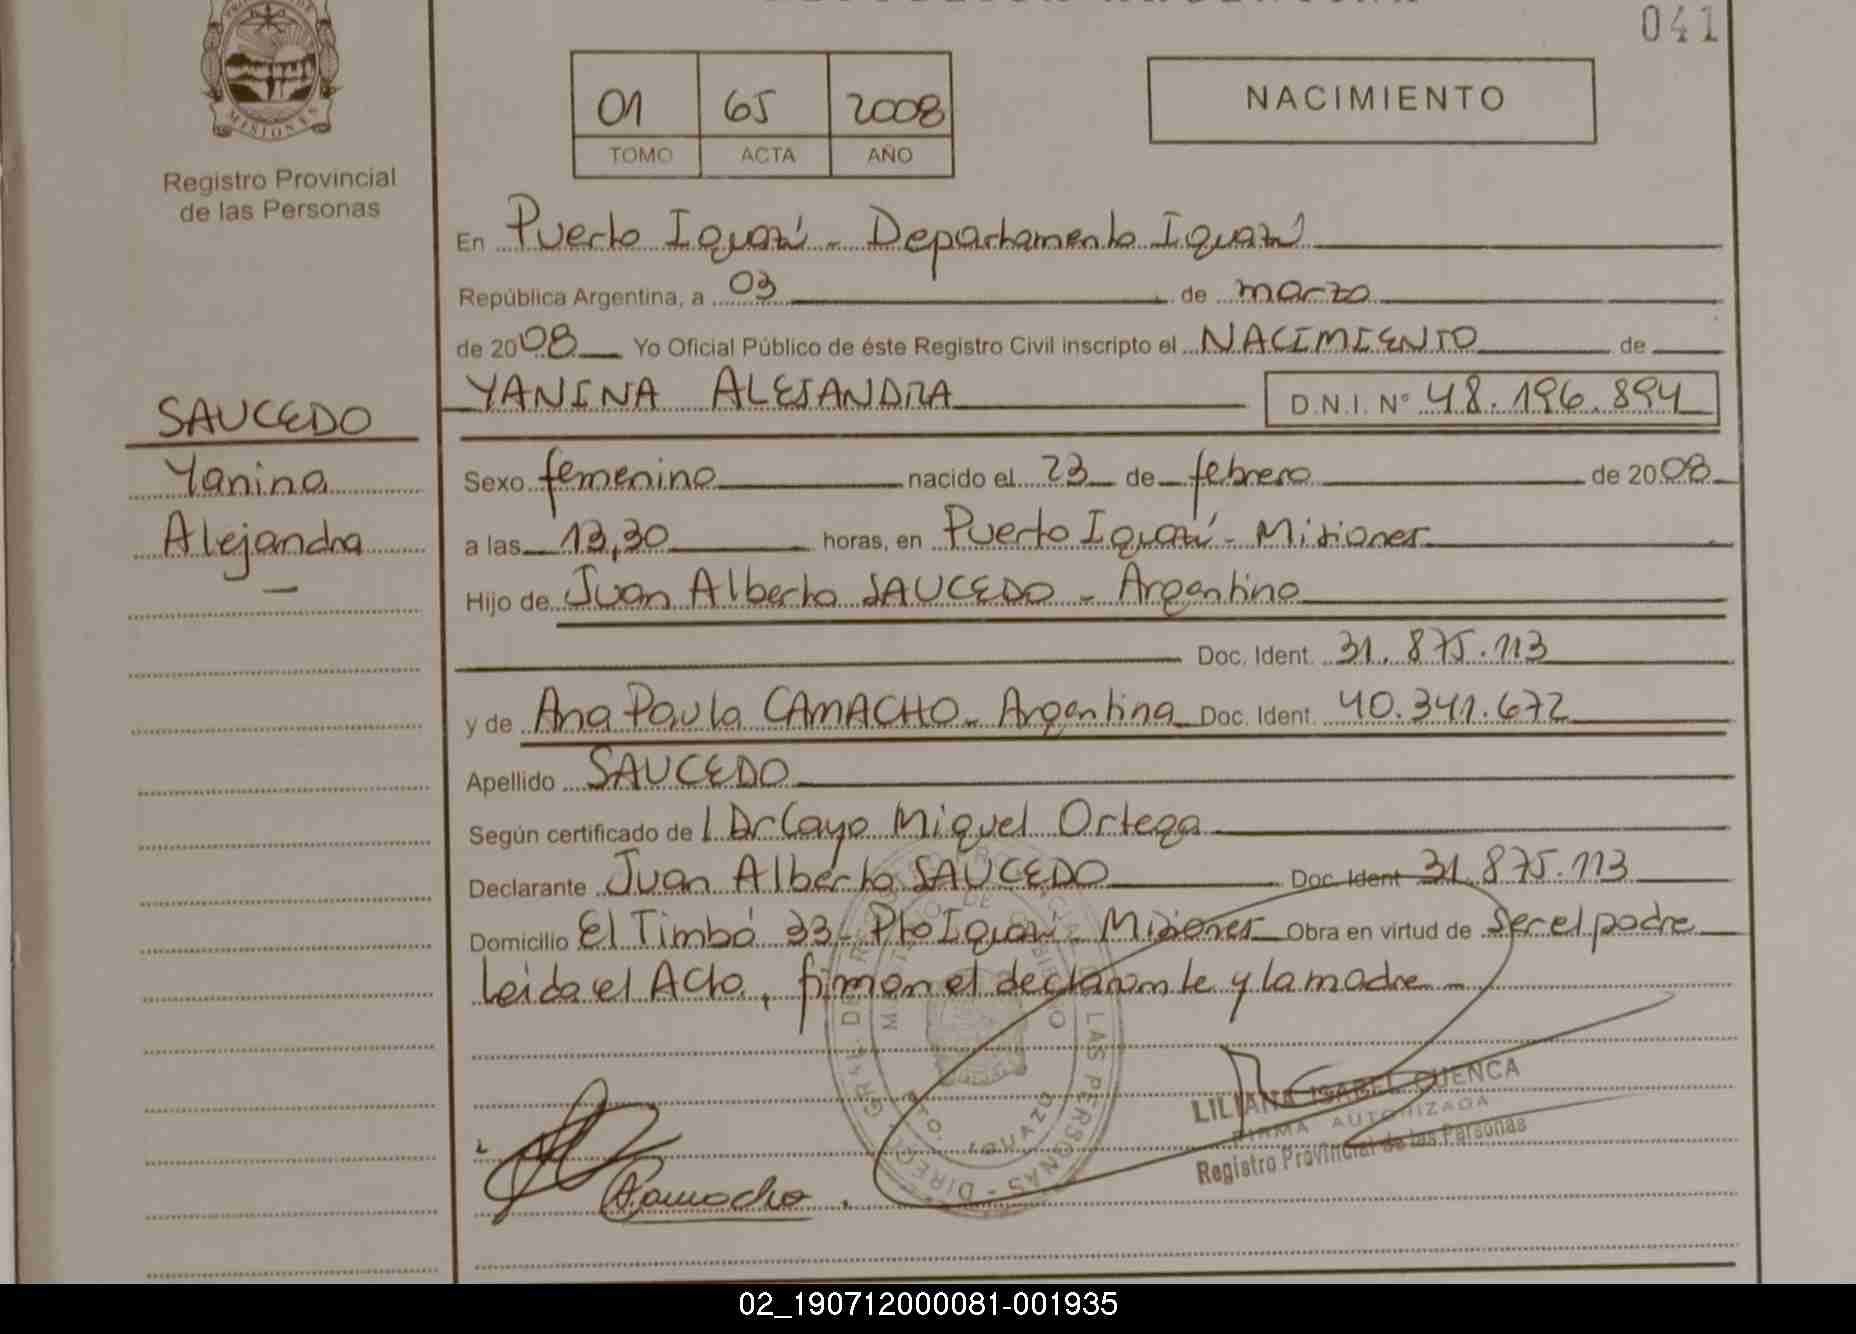 041
01 65 2008
TOMO ACTA AÑO
NACIMIENTO
MISIONES
Registro Provincial
de las Personas
En Puerto Iguazú - Departamento Iguazú
República Argentina, a 03 de marzo
de 2008 Yo Oficial Público de éste Registro Civil inscripto el NACIMIENTO de
YANINA ALEJANDRA D.N.I. N° 48.196.894
SAUCEDO
Yanina
Alejandra
Sexo femenino nacido el 23 de febrero de 2008
a las 13,30 horas, en Puerto Iguazú - Misiones
Hijo de Juan Alberto SAUCEDO - Argentino
Doc. Ident. 31.875.113
y de Ana Paula CAMACHO - Argentina Doc. Ident. 40.341.672
Apellido SAUCEDO
Según certificado de Dr Cayo Miguel Ortega
Declarante Juan Alberto SAUCEDO Doc. Ident 31.875.113
Domicilio El Timbó 33 - Pto Iguazú - Misiones Obra en virtud de ser el padre
Leida el Acta, firman el declarante y la madre -
LILIANA ISABEL CUENCA
FIRMA AUTORIZADA
Registro Provincial de las Personas
Camacho
02_190712000081-001935